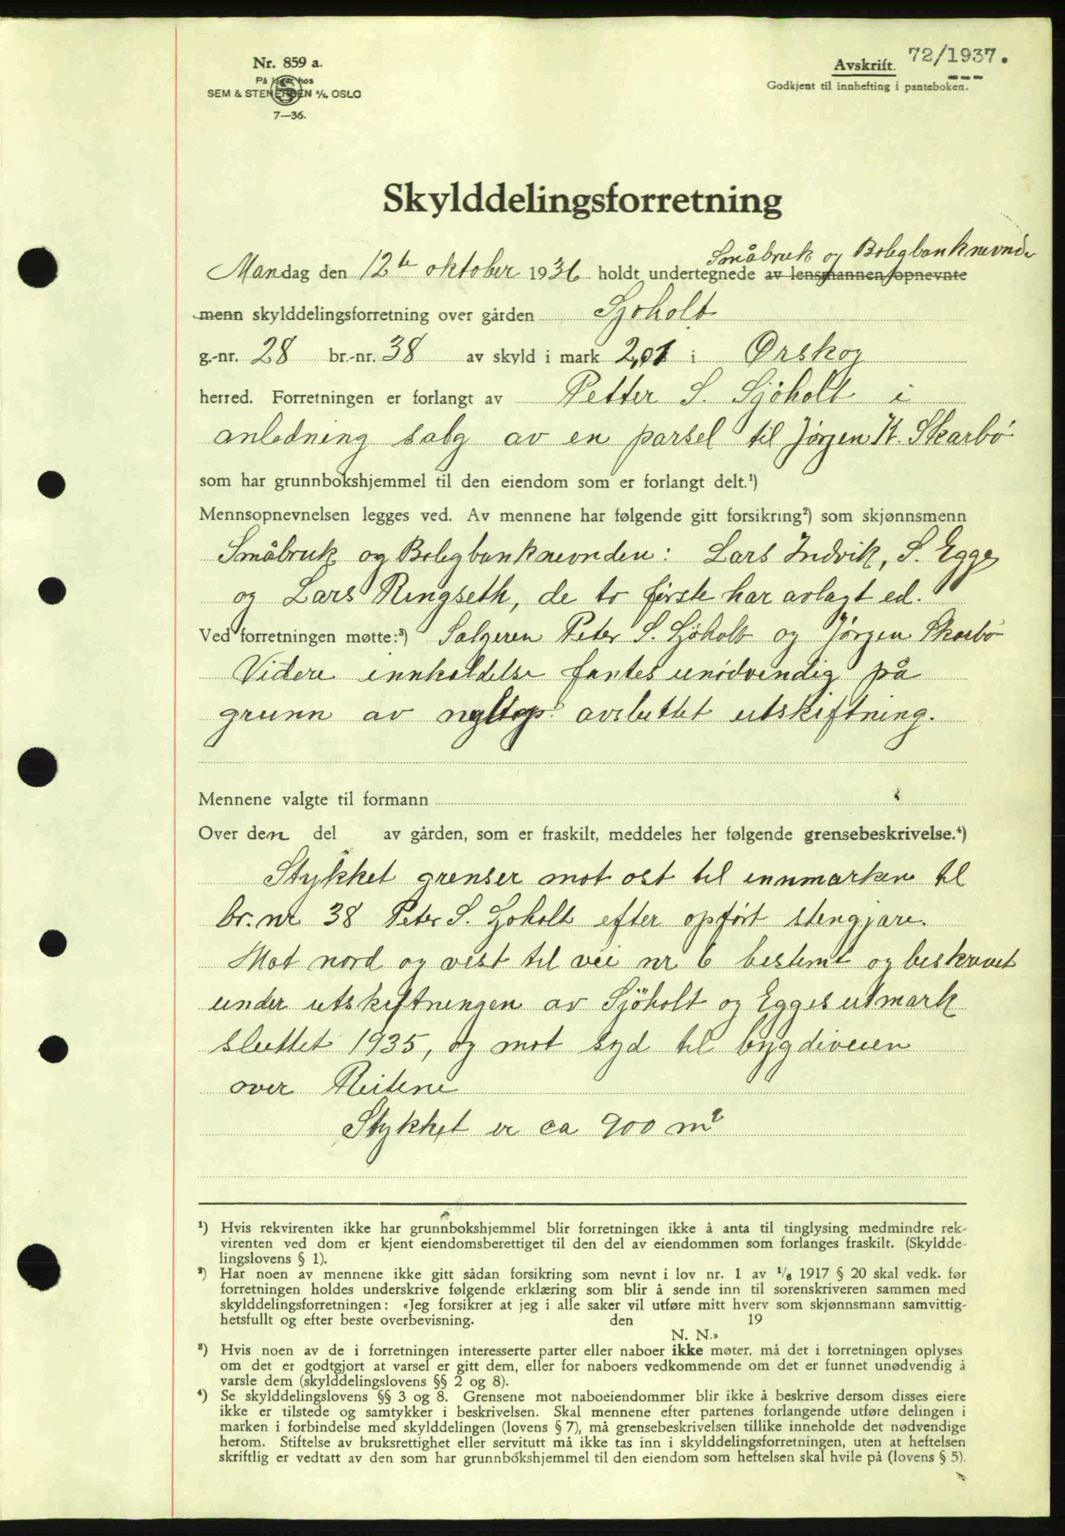 Nr. 859 a.
På lager hos
SEM & STENERSEN A/S, OSLO
7—36.
Avskrift. 72/1937.
Godkjent til innhefting i panteboken.
Skylddelingsforretning
Småbruk og Boligbanknevnden
Mandag den 12te oktober 1936 holdt undertegnede av lensmannen/opnevnte
menn skylddelingsforretning over gården Sjøholt
g.-nr. 28 br.-nr. 38 av skyld i mark 2,01 i Ørskog
herred. Forretningen er forlangt av Petter S. Sjöholt i
anledning salg av en parsel til Jørgen K. Skarbö
som har grunnbokshjemmel til den eiendom som er forlangt delt.¹)
Mennsopnevnelsen legges ved. Av mennene har følgende gitt forsikring²) som skjønnsmenn
Småbruk og Boligbanknevnden: Lars Indvik, S. Egge
og Lars Ringseth, de to förste har avlagt ed.
Ved forretningen møtte:³) Selgeren Peter S. Sjöholt og Jørgen Skarbö
Videre innkaldelse fantes unödvendig på
grunn av avsluttet utskiftning.
Mennene valgte til formann
Over den del av gården, som er fraskilt, meddeles her følgende grensebeskrivelse.⁴)
Stykket grenser mot ost til innmarken til
br. nr 38 Peter S. Sjöholt efter opfört stengjære.
Mot nord og vest til vei nr 6 bestemt og beskrevet
under utskiftningen av Sjöholt og Egges utmark
sluttet 1935, og mot syd til bygdeveien
over Reitene
Stykket er ca 900 m²
¹) Hvis rekvirenten ikke har grunnbokshjemmel blir forretningen ikke å anta til tinglysing medmindre rek-
virenten ved dom er kjent eiendomsberettiget til den del av eiendommen som forlanges fraskilt. (Skyldde-
lingslovens § 1).
²) Har noen av mennene ikke gitt sådan forsikring som nevnt i lov nr. 1 av 1/6 1917 § 20 skal vedk. før
forretningen holdes underskrive følgende erklæring som blir å sende inn til sorenskriveren sammen med
skylddelingsforretningen: «Jeg forsikrer at jeg i alle saker vil utføre mitt hverv som skjønnsmann samvittig-
hetsfullt og efter beste overbevisning. den 19
N. N.»
³) Hvis noen av de i forretningen interesserte parter eller naboer ikke møter, må det i forretningen oplyses
om det er godtgjort at varsel er gitt dem, eller for naboers vedkommende om det er funnet unødvendig å
varsle dem (skylddelingslovens §§ 2 og 8).
⁴) Se skylddelingslovens §§ 3 og 8. Grensene mot naboeiendommer blir ikke å beskrive dersom disses eiere
ikke er tilstede og samtykker i beskrivelsen. Skal mennene efter partenes forlangende utføre delingen i
marken i forbindelse med skylddelingen (lovens § 7), må grensebeskrivelsen tillike inneholde det nødvendige
herom. Stiftelse av bruksrettighet eller servitutt må ikke tas inn i skylddelingsforretningen, uten at heftelsen
skriftlig er vedtatt av den som har grunnbokshjemmel til den eiendom som heftelsen skal hvile på (lovens § 5).